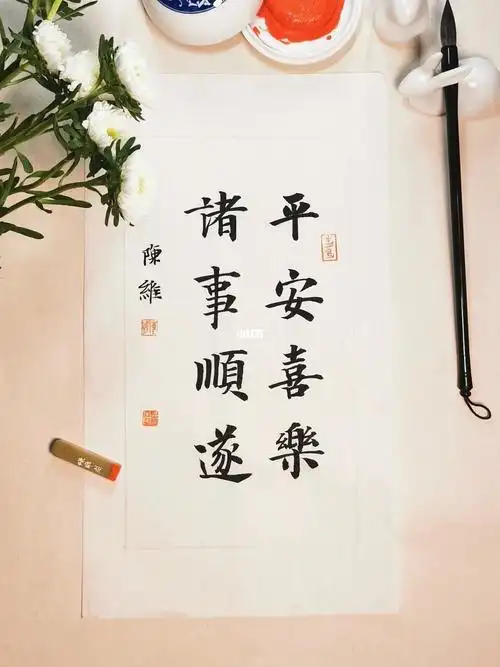 平安喜樂
諸事順遂
陳維